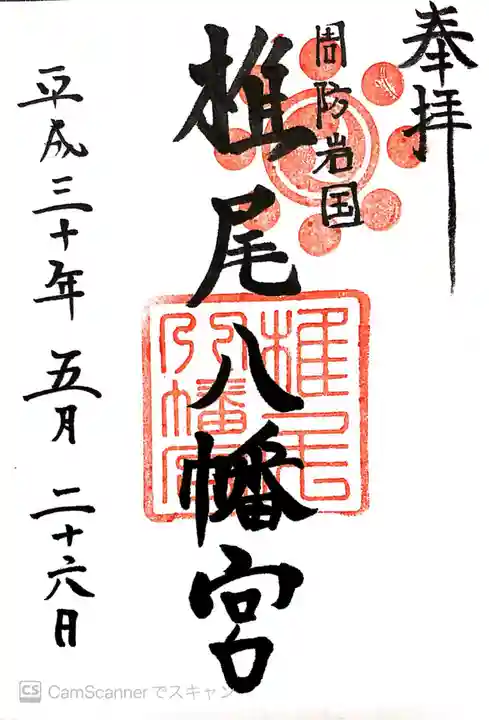 奉拝
周防岩国
椎尾八幡宮
椎尾八幡宮
平成三十年 五月 二十六日
CS CamScannerでスキャン